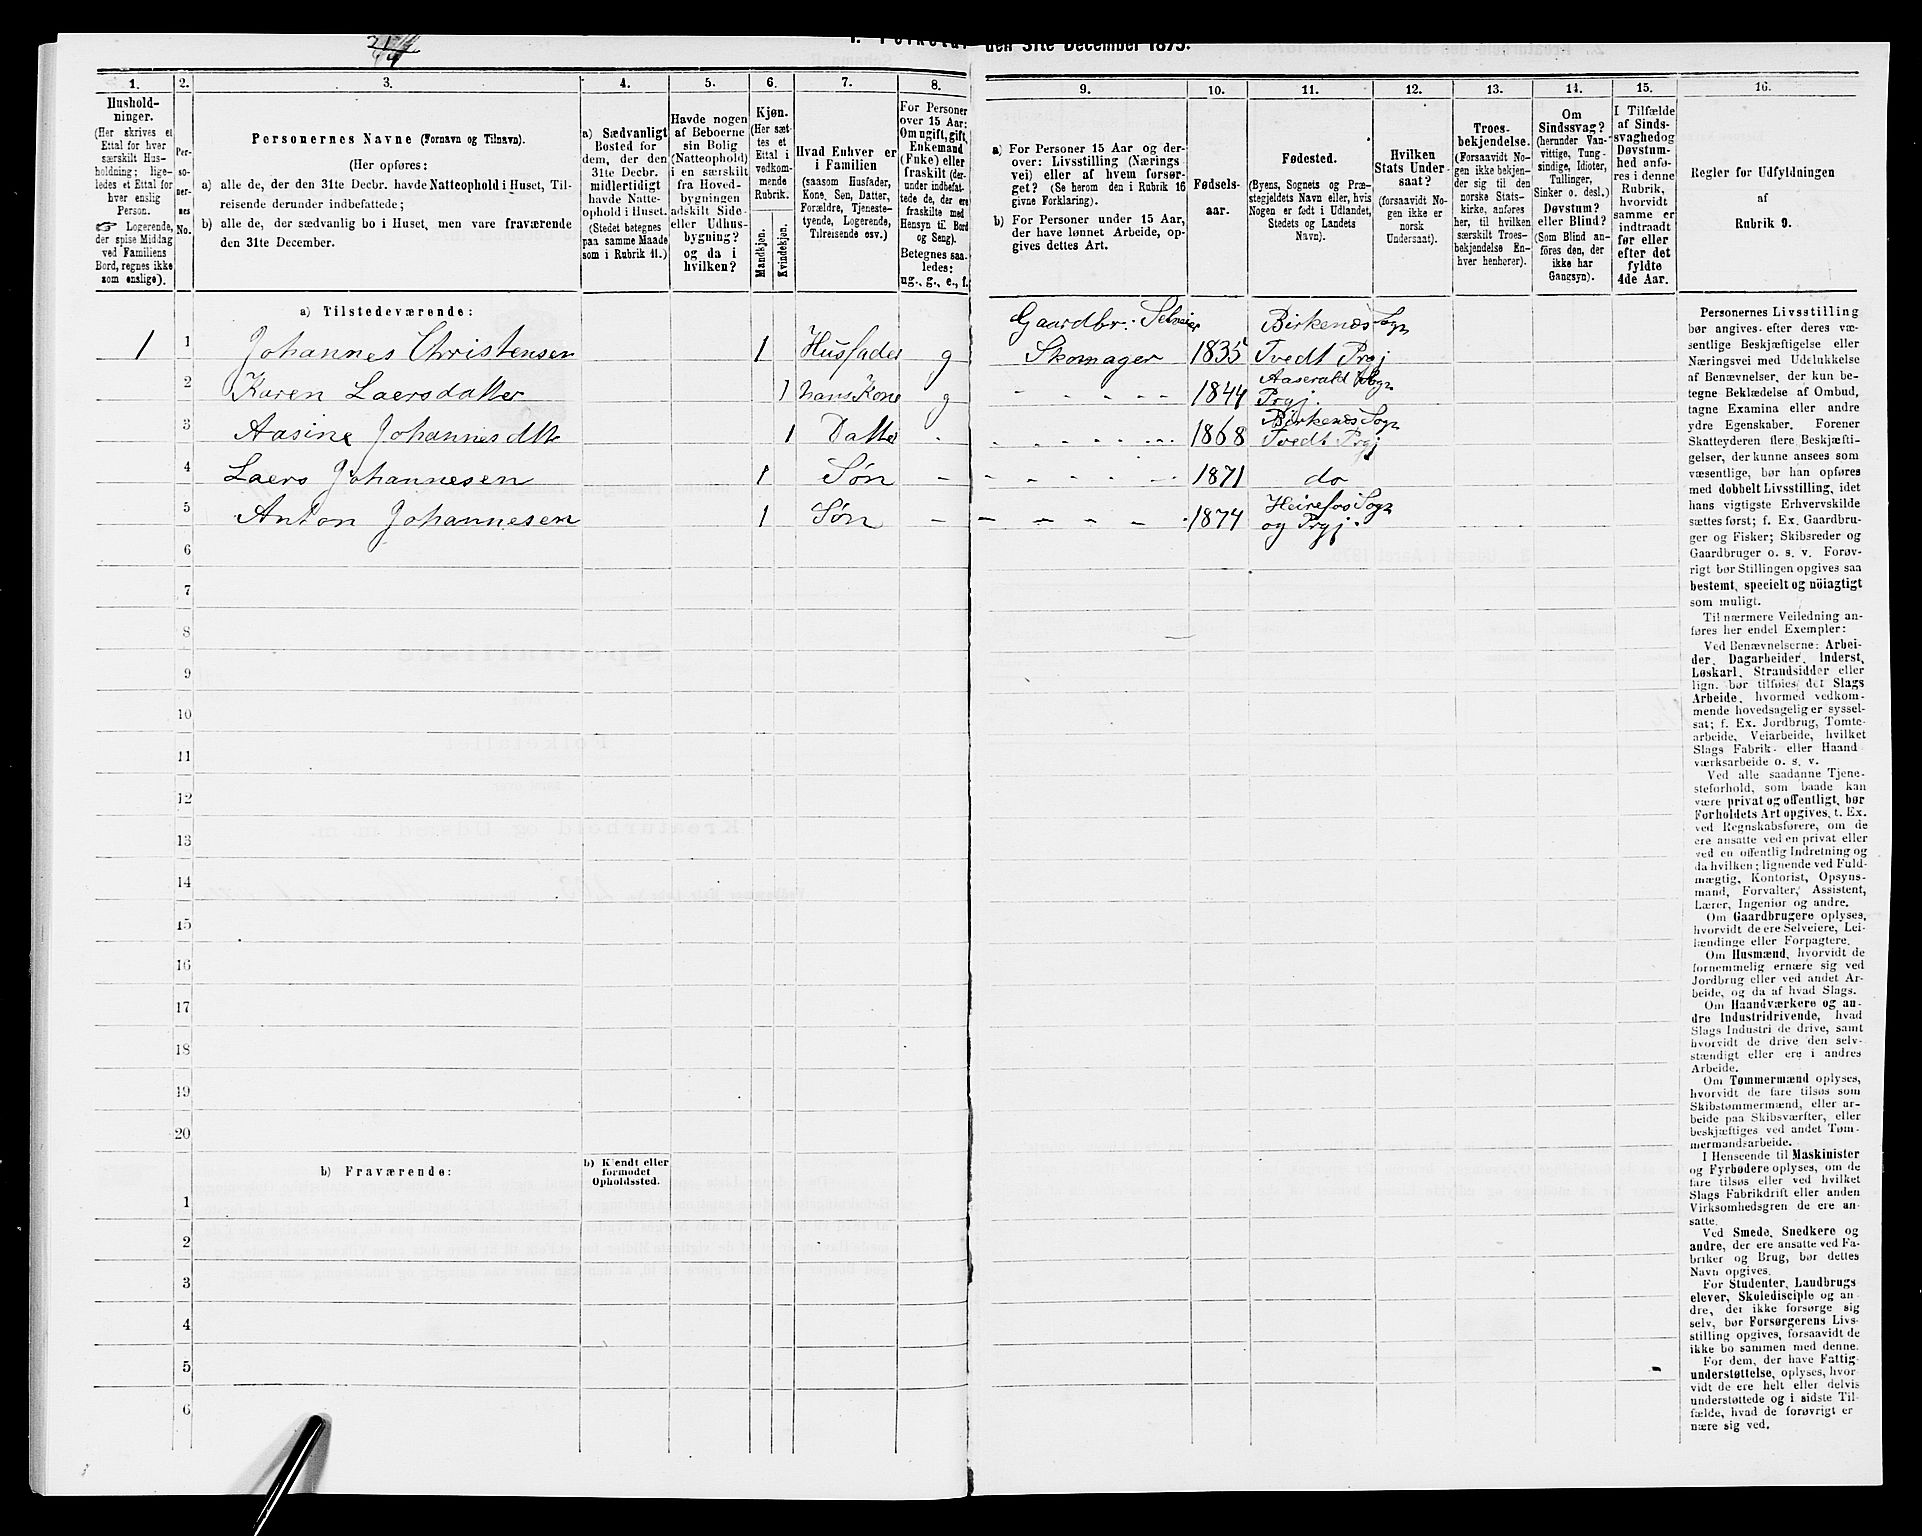 den 31te December 1875.
1.
2.
3.
4.
5.
6.
7.
8.
9.
10.
11.
12.
13.
14.
15.
16.
Hushold-
ninger.
(Her skrives et
Ettal for hver
særskilt Hus-
holdning; lige-
ledes et Ettal for
hver enslig
Person.
☞ Logerende,
der spise Middag
ved Familiens
Bord, regnes ikke
som enslige).
Per-
so-
ner-
nes
No.
Personernes Navne (Fornavn og Tilnavn).
(Her opføres:
a) alle de, der den 31te Decbr. havde Natteophold i Huset, Til-
reisende derunder indbefattede;
b) alle de, der sædvanlig bo i Huset, men vare fraværende
den 31te December.
a) Sædvanligt
Bosted for
dem, der den
31te Decbr.
midlertidigt
havde Natte-
ophold i Huset.
(Stedet betegnes
paa samme Maade
som i Rubrik 11.)
Havde nogen
af Beboerne
sin Bolig
(Natteophold)
i en særskilt
fra Hoved-
bygningen
adskilt Side-
eller Udhus-
bygning?
og da i
hvilken?
Kjøn.
(Her sæt-
tes et
Ettal i
vedkom-
mende
Rubrik.
Mandkjøn.
Kvindekjøn.
Hvad Enhver er
i Familien
(saasom Husfader,
Kone, Søn, Datter,
Forældre, Tjeneste-
tyende, Logerende,
Tilreisende osv.)
For Personer
over 15 Aar:
Om ugift, gift,
Enkemand
(Enke) eller
fraskilt (der-
under indbefat-
tede de, der ere
fraskilte med
Hensyn til Bord
og Seng).
Betegnes saa-
ledes:
ug., g., e., f.
a) For Personer 15 Aar og der-
over: Livsstilling (Nærings
vei) eller af hvem forsør-
get? (Se herom den i Rubrik 16
givne Forklaring).
b) For Personer under 15 Aar,
der have lønnet Arbeide, op-
gives dettes Art.
Fødsels-
aar.
Fødested.
(Byens, Sognets og Præ-
stegjeldets Navn eller, hvis
Nogen er født i Udlandet,
Stedets og Landets
Navn).
Hvilken
Stats Under-
saat?
(forsaavidt No-
gen ikke er
norsk
Undersaat).
Troes-
bekjendelse.
(Forsaavidt No-
gen ikke bekjen-
der sig til den
norske Stats-
kirke, anføres
her, til hvilken
særskilt Troes-
bekjendelse En-
hver henhører).
Om
Sindssvag?
(herunder Van-
vittige, Tung-
sindige, Idioter,
Tullinger,
Sinker o. desl.)
Døvstum?
eller Blind?
(Som Blind an-
føres den, der
ikke har
Gangsyn).
I Tilfælde
af Sinds-
svaghed og
Døvstum-
hed anfø-
res i denne
Rubrik,
hvorvidt
samme er
indtraadt
før eller
efter det
fyldte
4de Aar.
Regler for Udfyldningen
af
Rubrik 9.
a) Tilstedeværende:
1 1 Johannes Christensen 1 Husfader g Gaardbr. Selveier Skomager 1835 Birkenes Sogn Tvedt Prgj
2 Karen Laersdatter 1 hans Kone g 1844 Aaserald Sogn Prgj.
3 Aasine Johannesdtte 1 Datter 1868 Birkenes Sogn Tvedt Prgj
4 Laers Johannesen 1 Søn 1871 do
5 Anton Johannesen 1 Søn 1874 Heirefos Sogn og Prgj.
6
7
8
9
10
11
12
13
14
15
16
17
18
19
20
b) Fraværende:
b) Kjendt eller
formodet
Opholdssted.
1
2
3
4
5
6
Personernes Livsstilling
bør angives efter deres væ-
sentlige Beskjæftigelse eller
Næringsvei med Udelukkelse
af Benævnelser, der kun be-
tegne Beklædelse af Ombud,
tagne Examina eller andre
ydre Egenskaber. Forener
Skatteyderen flere Beskjæfti-
gelser, der kunne ansees som
væsentlige, bør han opføres
med dobbelt Livsstilling, idet
hans vigtigste Erhvervskilde
sættes først; f. Ex. Gaardbru-
ger og Fisker; Skibsreder og
Gaardbruger o. s. v. Forøv-
rigt bør Stillingen opgives saa
bestemt, specielt og nöiagtigt
som muligt.
Til nærmere Veiledning an-
føres her endel Exempler:
Ved Benævnelserne: Arbei-
der, Dagarbeider, Inderst,
Løskarl, Strandsidder eller
lign. bør tilføies det Slags
Arbeide, hvormed vedkom-
mende hovedsagelig er syssel-
sat; f. Ex. Jordbrug, Tomte-
arbeide, Veiarbeide, hvilket
Slags Fabrik- eller Haand
værksarbeide o. s. v.
Ved alle saadanne Tjene-
steforhold, som baade kan
være privat og offentligt, bør
Forholdets Art opgives, t. Ex.
ved Regnskabsførere, om de
ere ansatte ved en privat eller
ved en offentlig Indretning og
da hvilken; lignende ved Fuld-
mægtig, Kontorist, Opsyns-
mand, Forvalter, Assistent,
Lærer, Ingeniør og andre.
Om Gaardbrugere oplyses,
hvorvidt de ere Selveiere, Lei-
lændinge eller Forpagtere.
Om Husmænd, hvorvidt de
fornemmelig ernære sig ved
Jordbrug eller ved andet Ar-
beide, og da af hvad Slags.
Om Haandværkere og an-
dre Industridrivende, hvad
Slags Industri de drive, samt
hvorvidt de drive den selv-
stændigt eller ere i andres
Arbeide.
Om Tømmermænd oplyses,
hvorvidt de fare tilsøs som
Skibstømmermænd, eller ar-
beide paa Skibsværfter, eller
beskjæftiges ved andet Tøm-
mermandsarbeide.
I Henseende til Maskinister
og Fyrbødere oplyses, om de
fare tilsøs eller ved hvilket
Slags Fabrikdrift eller anden
Virksomhedsgren de ere an-
satte.
Ved Smede, Snedkere og
andre, der ere ansatte ved Fa-
briker og Brug, bør dettes
Navn opgives.
For Studenter, Landbrugs
elever, Skoledisciple og an
dre, der ikke forsørge sig
selv, bør Forsørgerens Livs-
stilling opgives, forsaavidt de
ikke bo sammen med denne.
For dem, der have Fattig-
understøttelse, oplyses, hvor-
vidt de ere helt eller delvis
understøttede og i sidste Til-
fælde, hvad de forøvrigt er
nære sig ved.